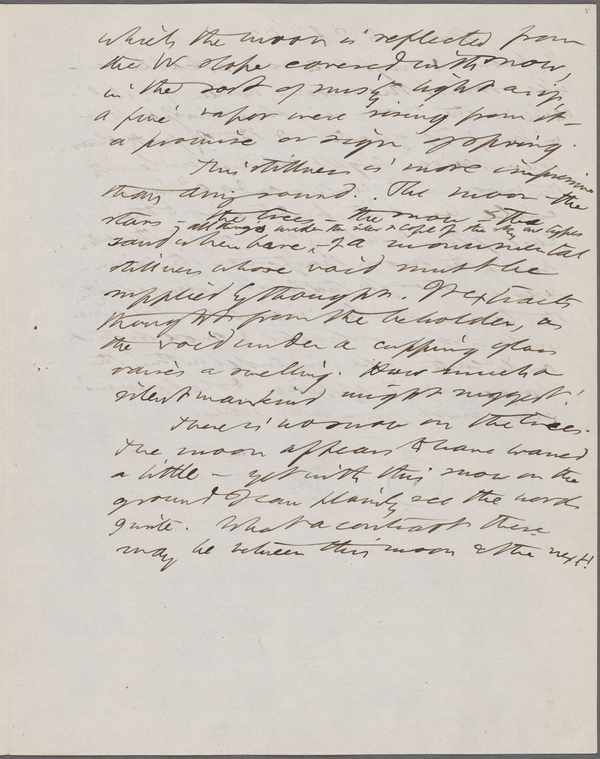 which the moon is reflected from
the W slope covered with snow,
in the sort of misty light as if
a fine vapor were rising from it –
a promise or sign of spring.
This stillness is more impressive
than any sound. . The moon – the
stars – the trees – the snow – the
all things under the & cope of the sky are types
sand when bare, – of a monumental
stillness whose void must be
supplied by thought. It extracts
thought from the beholder, as
the void under a cupping glass
raises a swelling. How much a
silent mankind might suggest!
There is no snow on the trees.
The moon appears to have waned
a little – yet with this snow on the
ground I can plainly see the words
I write. What a contrast there
may be between this moon & the next!